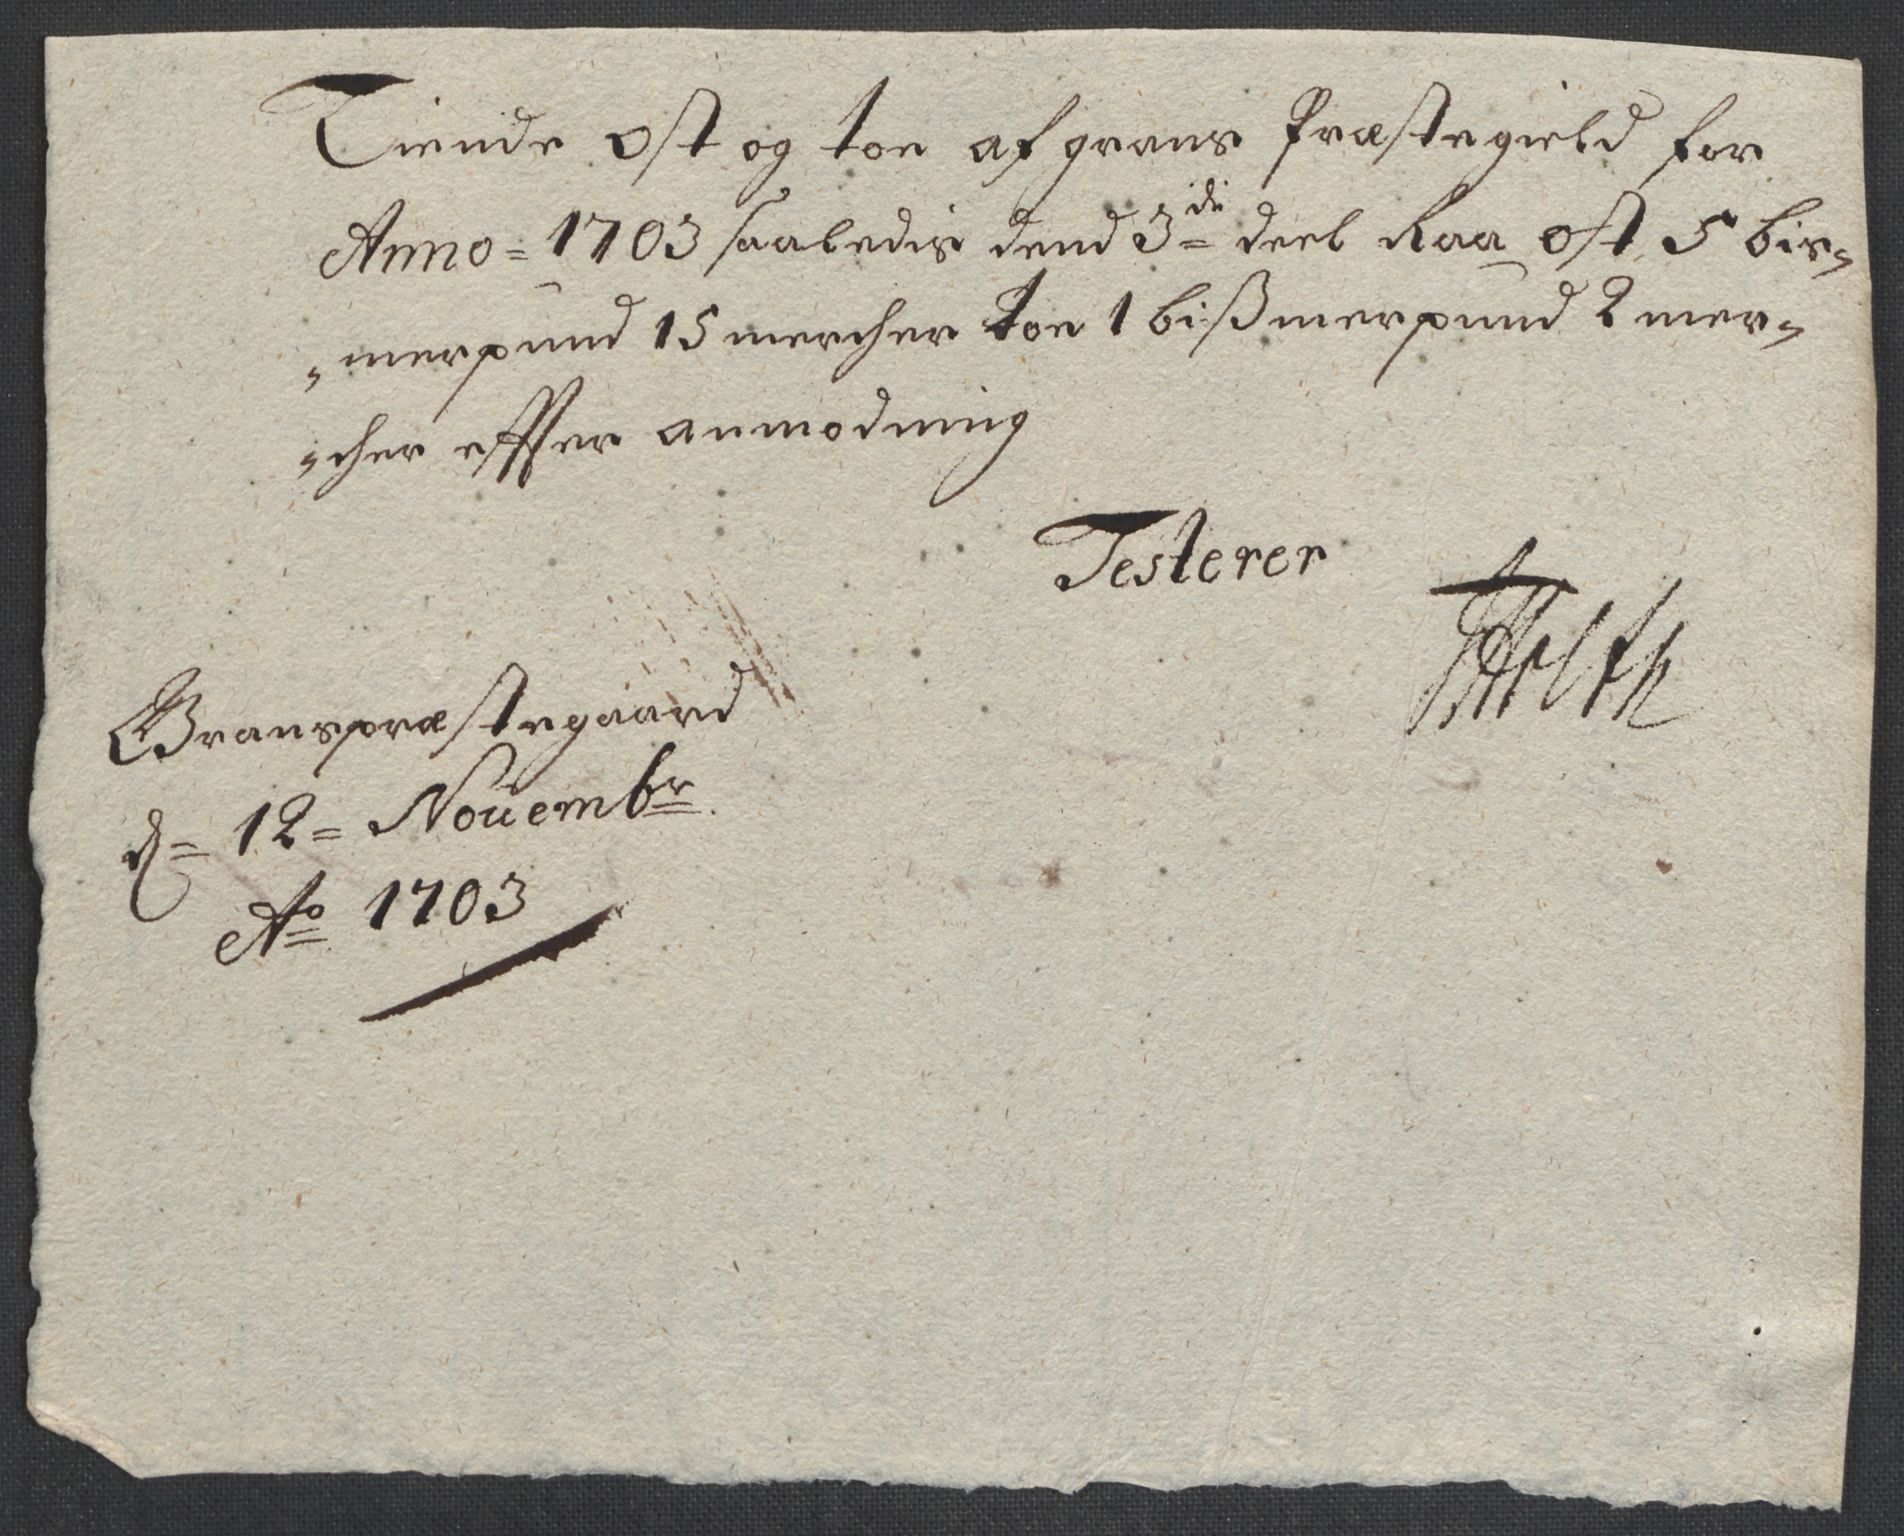 Tiende Ost og toe af grans Præstegield for
Anno = 1703 saaledis dend 3de deel Raa Ost 5 bis=
=merpund 15 mercher toe 1 bißmerpund 2 mer=
=cher effter anmodning
Testerer
Granspræstegaard
d = 12 = Nouembr
Ao 1703